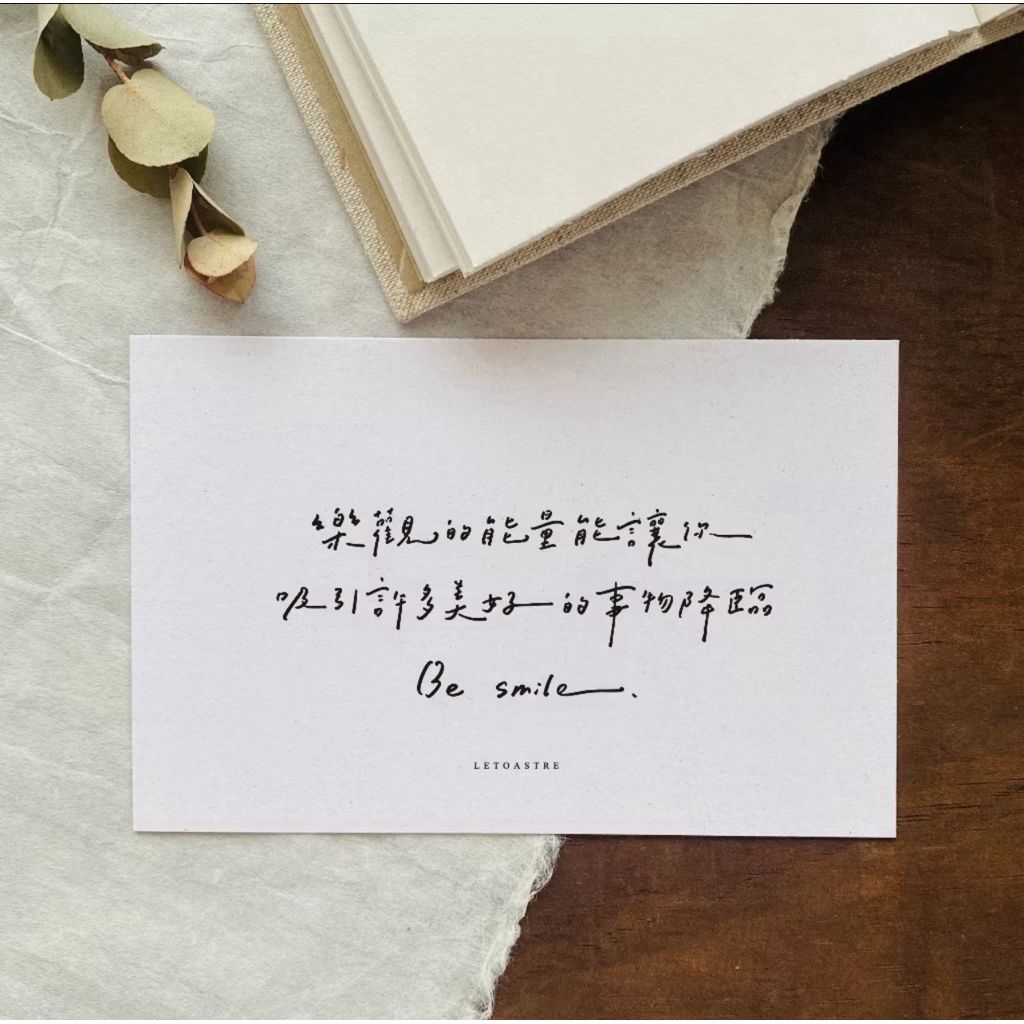 樂觀的能量能讓你
吸引許多美好的事物降臨
Be smile.
LETOASTRE